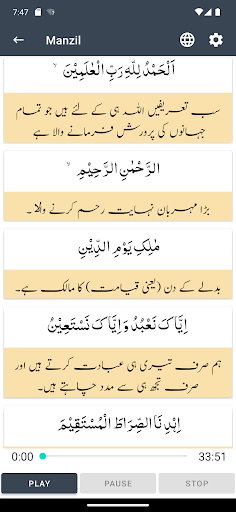 7:47
Manzil
اَلْحَمْدُ لِلّٰهِ رَبِّ الْعٰلَمِيْنَ
سب تعریفیں اللہ ہی کے لئے ہیں جو تمام
جہانوں کی پرورش فرمانے والا ہے
الرَّحْمٰنِ الرَّحِيْمِ ۙ
بڑا مہربان نہایت رحم کرنے والا ۔
مٰلِكِ يَوْمِ الدِّيْنِ
بدلے کے دن (یعنی قیامت) کا مالک ہے۔
اِيَّاكَ نَعْبُدُ وَاِيَّاكَ نَسْتَعِيْنُ
ہم صرف تیری ہی عبادت کرتے ہیں اور
صرف تجھ ہی سے مدد چاہتے ہیں۔
اِهْدِنَا الصِّرَاطَ الْمُسْتَقِيْمَ
0:00 33:51
PLAY PAUSE STOP